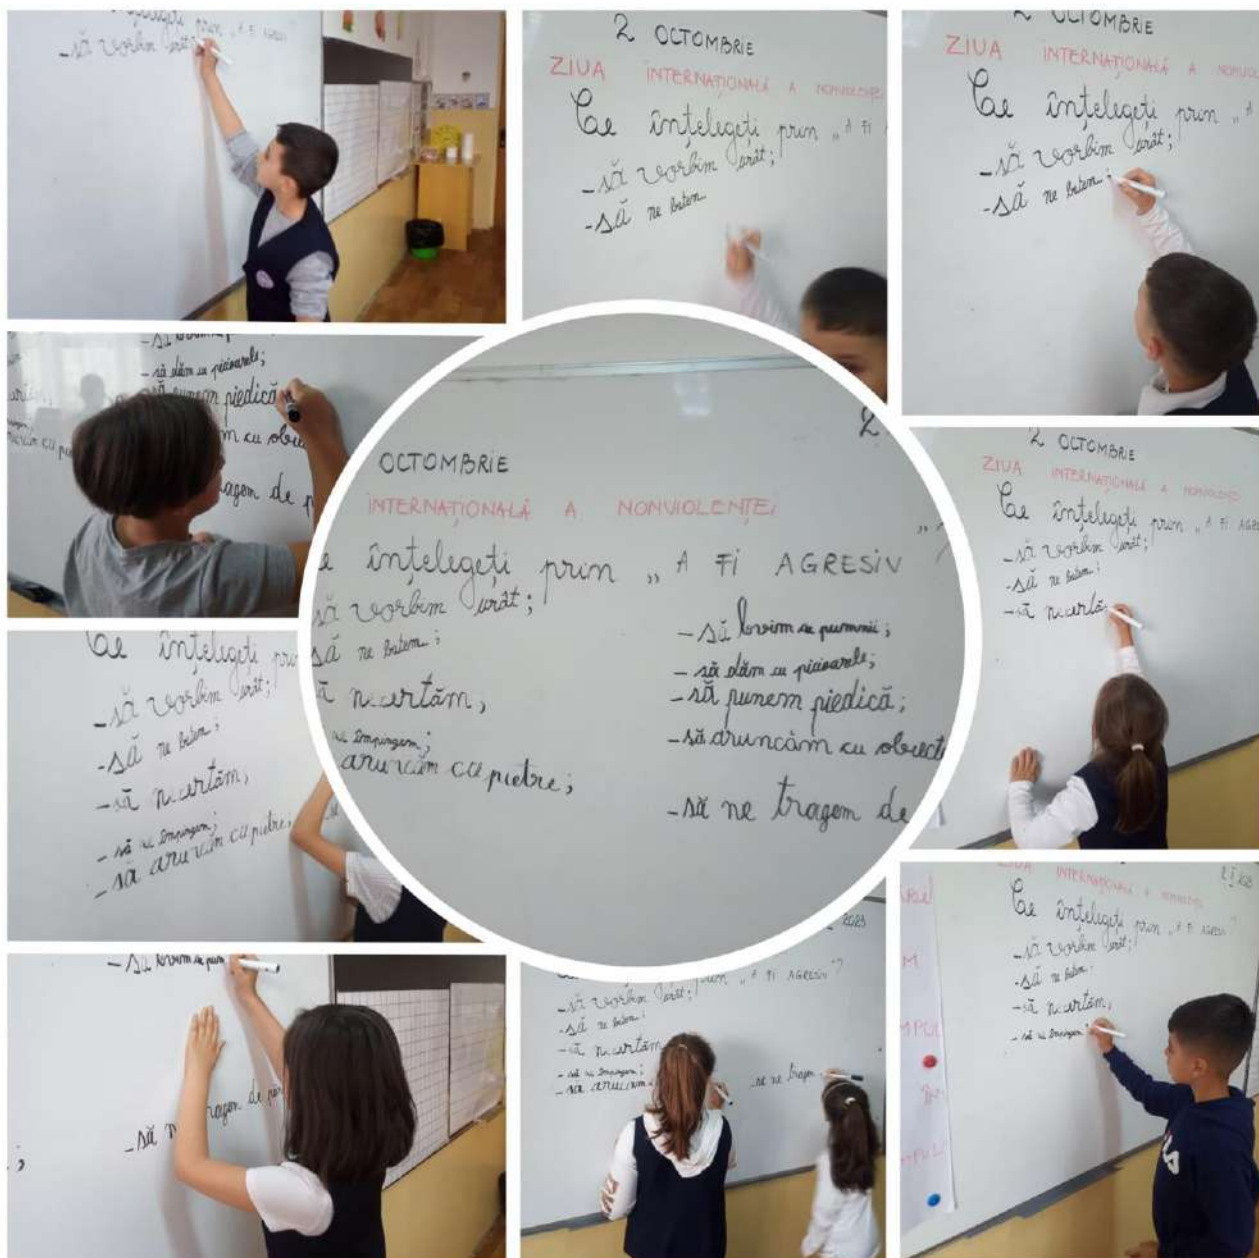 prin „A FI AGRESIV
-să vorbim urât
2 OCTOMBRIE
ZIUA INTERNAȚIONALĂ A NONVIOLENȚEI
Ce înțelegeți prin „A FI A
-să vorbim urât;
-să ne batem
2 OCTOMBRIE
ZIUA INTERNAȚIONALĂ A NONVIOLE
Ce înțelegeți prin „A
-să vorbim urât;
-să ne batem;
- să dăm cu picioarele;
să punem piedică
m cu obiec
ragem de p
2
OCTOMBRIE
INTERNAȚIONALĂ A NONVIOLENȚEI
e înțelegeți prin „A FI AGRESIV"?
să vorbim urât;
să ne batem;
ă ne certăm,
ne împingem;
aruncăm cu pietre;
-să lovim cu pumnii;
-să dăm cu picioarele;
-să punem piedică;
-să aruncăm cu obiecte
-să ne tragem de
2 OCTOMBRIE
ZIUA INTERNAȚIONALĂ A NONVIOLENȚEI
Ce înțelegeți prin „A FI AGRE
-să vorbim urât;
-să ne batem;
-să ne certă
Ce înțelegeți prin
-să vorbim urât;
-să ne batem;
-să ne certăm,
-să ne împingem;
-să aruncăm cu pietre;
ZIUA INTERNAȚIONALĂ A NONVIOLENȚEI
Ce înțelegeți prin „A FI AGRESIV"?
-să vorbim urât;
-să ne batem;
-să ne certăm,
-să ne împingem;
MPUL
ÎN
MPUL
-să lovim cu pum
-să n ragem de
2023
-să vorbim urât; prin „A FI AGRESIV"?
-să ne batem;
-să ne certăm
-să ne împingem;
-să aruncăm
-se ne tragem